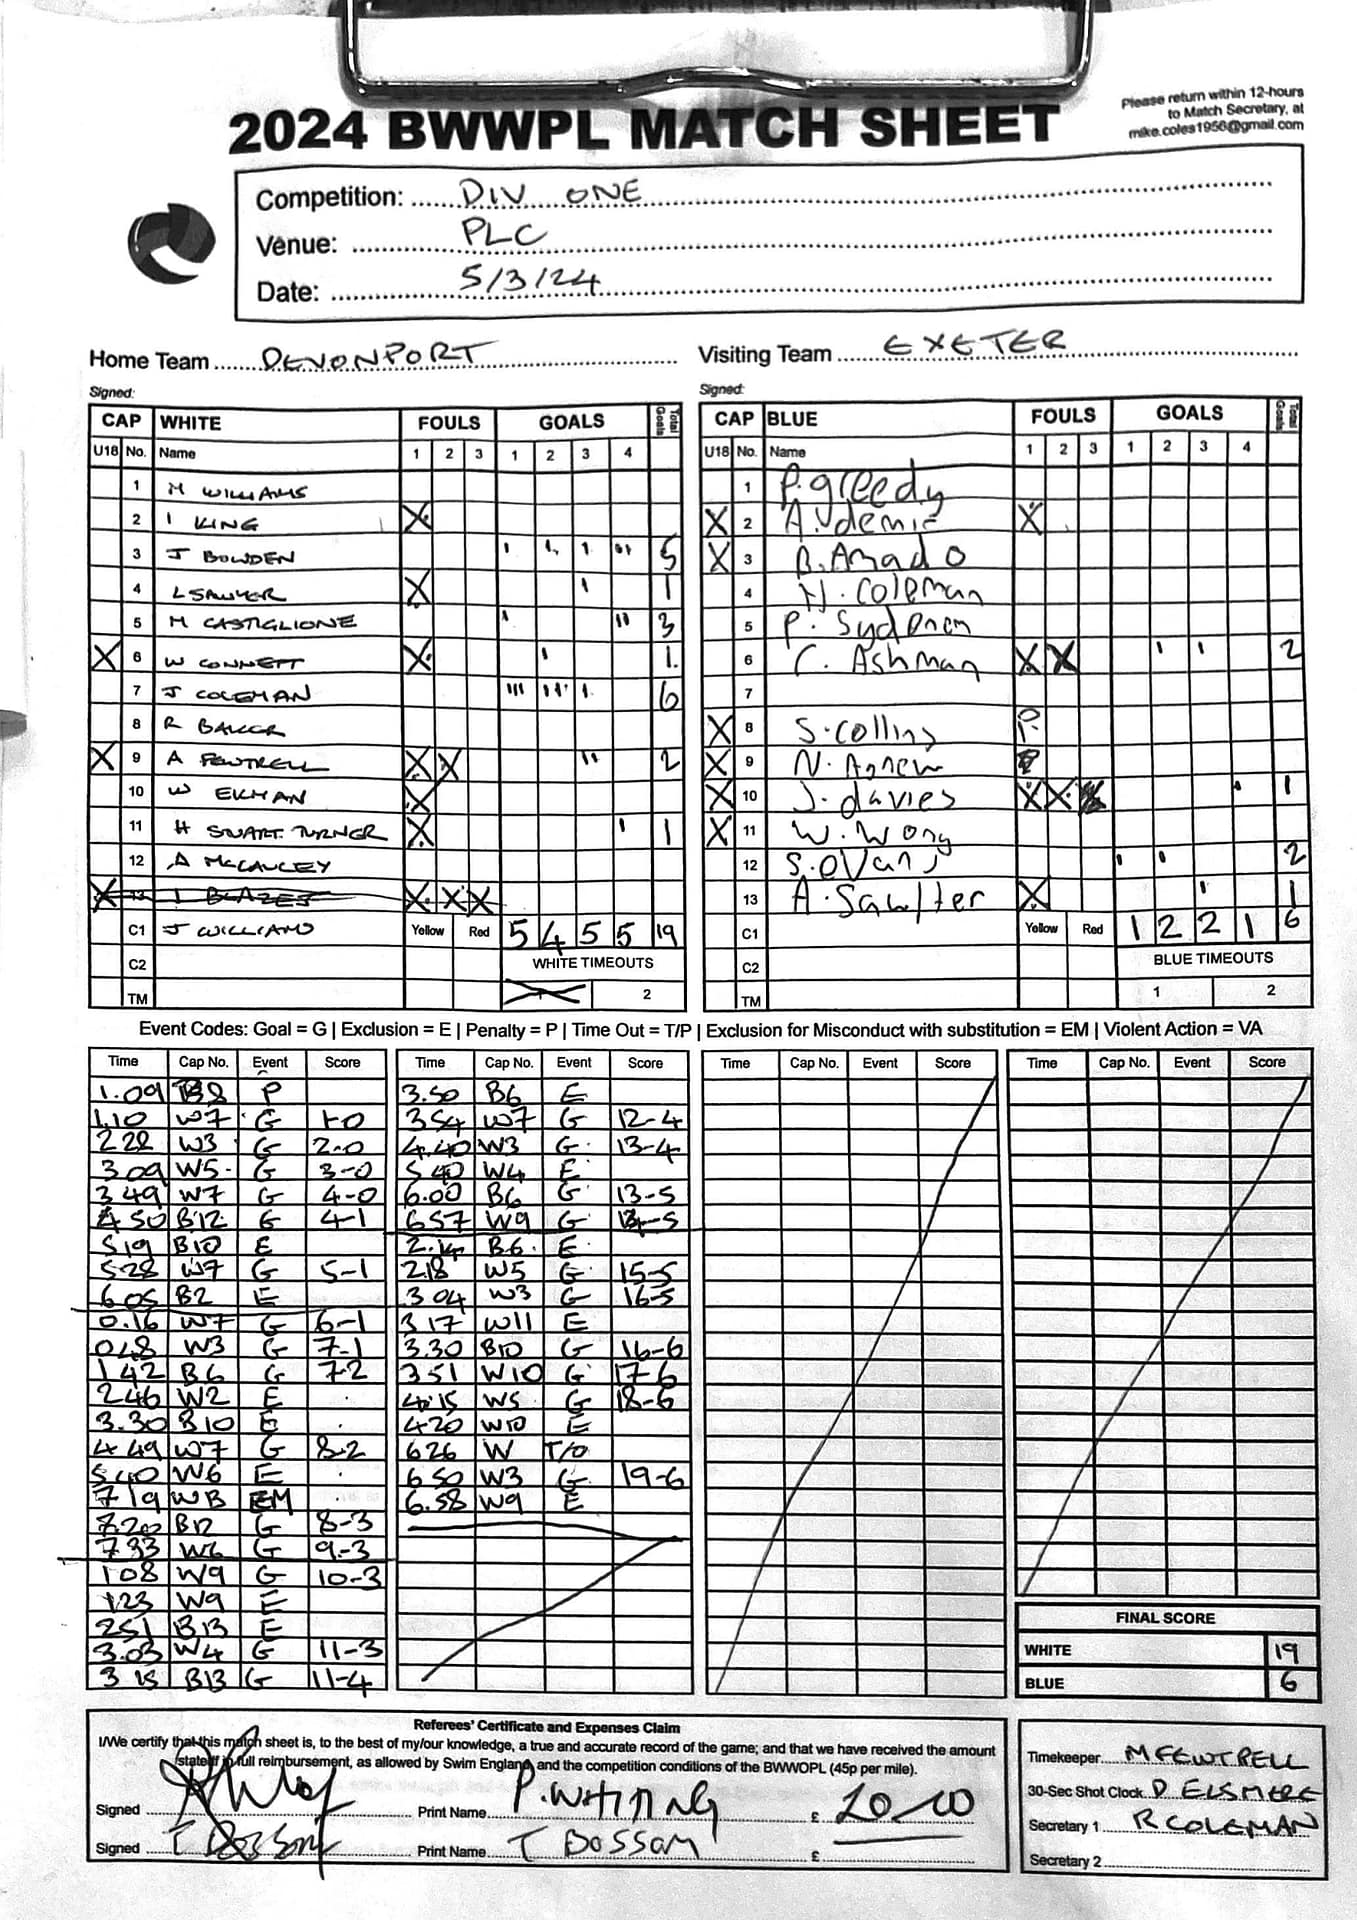 2024 BWWPL MATCH SHEET
Please return within 12-hours
to Match Secretary, at
mike.coles1956@gmail.com
Competition: DIV ONE
Venue: PLC
Date: 5/3/24
Home Team DEVONPORT
Visiting Team EXETER
Signed:
Signed:
CAP WHITE FOULS GOALS Total Goals
U18 No. Name 1 2 3 1 2 3 4
1 M WILLIAMS
2 I KING X
3 J BOWDEN ' '' ' '' 5
4 L SAWYER X ' 1
5 M CASTIGLIONE ' '' 3
X 6 W CONNETT X ' 1
7 J COLEMAN ''' ''' ' 6
8 R BAKER
X 9 A FEWTRELL X X '' 2
10 W EKMAN X
11 H SMART-TURNER X ' 1
12 A MCCAULEY
X 13 I BLAZES X X X
C1 J WILLIAMS Yellow Red 5 4 5 5 19
C2 WHITE TIMEOUTS
TM 1 2
CAP BLUE FOULS GOALS Total Goals
U18 No. Name 1 2 3 1 2 3 4
1 P. greedy
X 2 A. Vdemic X
X 3 B. Amado
4 N. Coleman
5 P. Sydenham
6 C. Ashman X X ' ' 2
7
X 8 S. Collins P
X 9 N. Agnew
X 10 J. davies X X X ' 1
X 11 W. Wong
12 S. evans ' ' 2
13 A. Sawlter X ' 1
C1 Yellow Red 1 2 2 1 6
C2 BLUE TIMEOUTS
TM 1 2
Event Codes: Goal = G | Exclusion = E | Penalty = P | Time Out = T/P | Exclusion for Misconduct with substitution = EM | Violent Action = VA
Time Cap No. Event Score
1.09 B8 P
1.10 W7 G 1-0
2 22 W3 G 2-0
3 09 W5 G 3-0
3 49 W7 G 4-0
4 50 B12 G 4-1
5 19 B10 E
5 28 W7 G 5-1
6 05 B2 E
0.16 W7 G 6-1
0 48 W3 G 7-1
1 42 B6 G 7-2
2 46 W2 E
3.30 B10 E
4 49 W7 G 8-2
5 40 W6 E
7 19 W13 EM
7.20 B12 G 8-3
7 33 W6 G 9-3
1 08 W9 G 10-3
1 23 W9 E
2 51 B13 E
3.03 W4 G 11-3
3 15 B13 G 11-4
Time Cap No. Event Score
3.50 B6 E
3 54 W7 G 12-4
4.40 W3 G 13-4
5 40 W4 E
6.00 B6 G 13-5
6 57 W9 G 14-5
2.14 B6 E
2.18 W5 G 15-5
3 04 W3 G 16-5
3 17 W11 E
3.30 B10 G 16-6
3 51 W10 G 17-6
4.15 W5 G 18-6
4 20 W10 E
6 26 W T/O
6 50 W3 G 19-6
6.58 W9 E
Time Cap No. Event Score
Time Cap No. Event Score
FINAL SCORE
WHITE 19
BLUE 6
Referees' Certificate and Expenses Claim
I/We certify that this match sheet is, to the best of my/our knowledge, a true and accurate record of the game; and that we have received the amount
stated in full reimbursement, as allowed by Swim England and the competition conditions of the BWWOPL (45p per mile).
Signed Print Name P. WHITING £ 20-00
Signed T Bossom Print Name T BOSSOM £
Timekeeper M FEWTRELL
30-Sec Shot Clock D ELSMERE
Secretary 1 R COLEMAN
Secretary 2